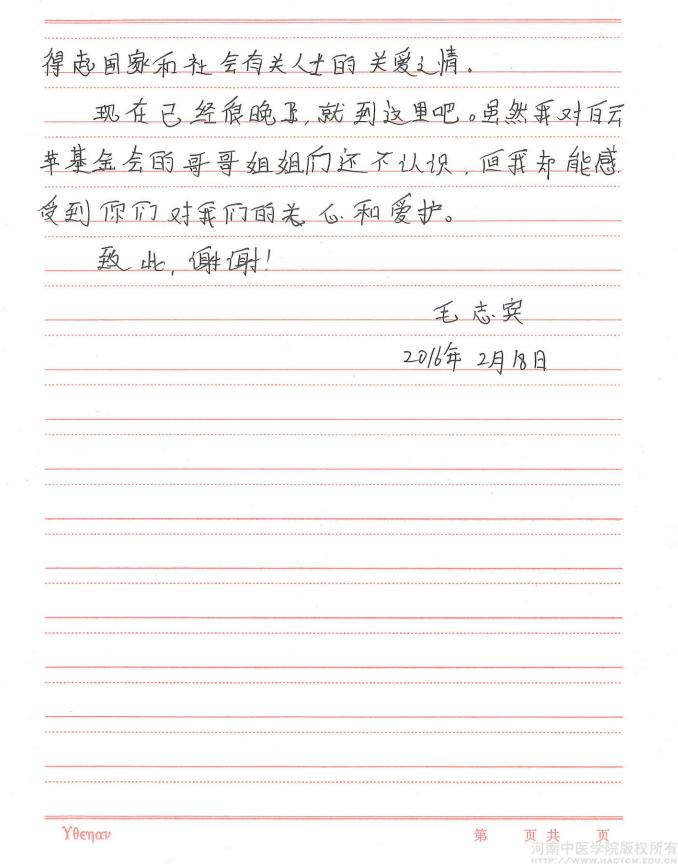 得起国家和社会有关人士的关爱之情.
现在已经很晚了,就到这里吧。虽然我对白云
苹基金会的哥哥姐姐们还不认识,但我却能感
受到你们对我们的关心和爱护。
致此,谢谢!
毛志宾
2016年 2月18日
Yθεηαν
第 页 共 页
河南中医学院版权所有
HTTP://WWW.HACTCM.EDU.CN